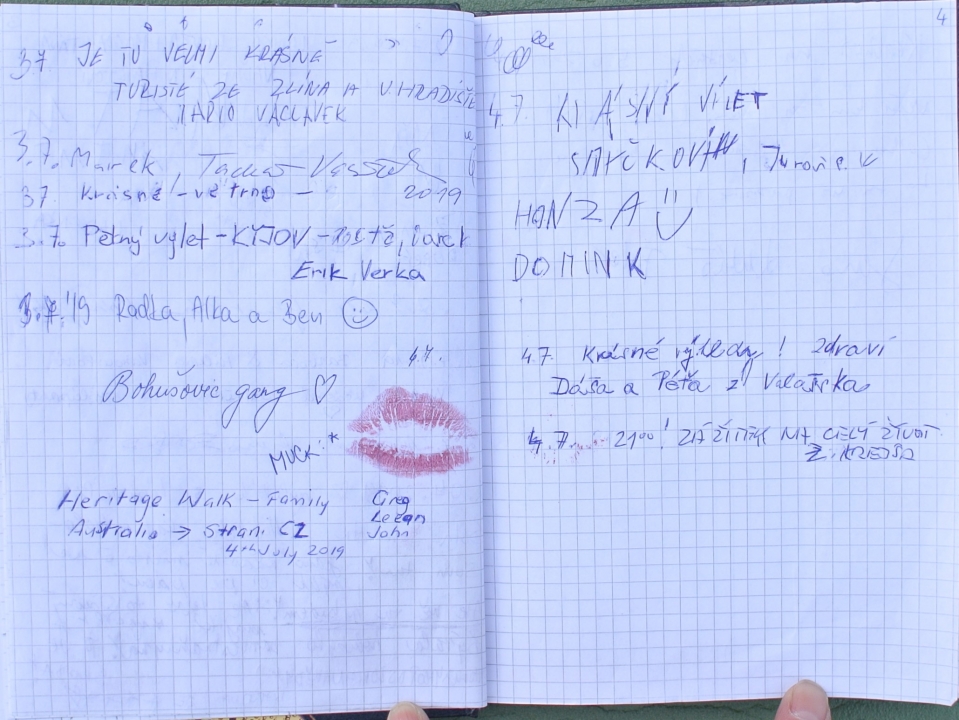 3.7 JE TU VELMI KRÁSNĚ
TURISTÉ ZE ZLÍNA A UHRADIŠTĚ
MARIO VÁCLAVEK
3.7. Marek,
2019
3.7. Krásné - větrno -
3.7. Pěkný výlet - KYJOV -
Erik Verka
3.7.'19 Radka, Alka a Ben
4.7.
Bohušovic gang ♡
MUCK :*
Heritage Walk - Family
Australia → Strani CZ
4th July 2019
Greg
Leean
John
4
4.7. KRÁSNÝ VÝLET
HONZA
DOMINIK
4.7. Krásné výhledy! zdraví
Dáša a Péťa z Valašska
4.7. 21⁰⁰! ZÁŽITEK NA CELÝ ŽIVOT